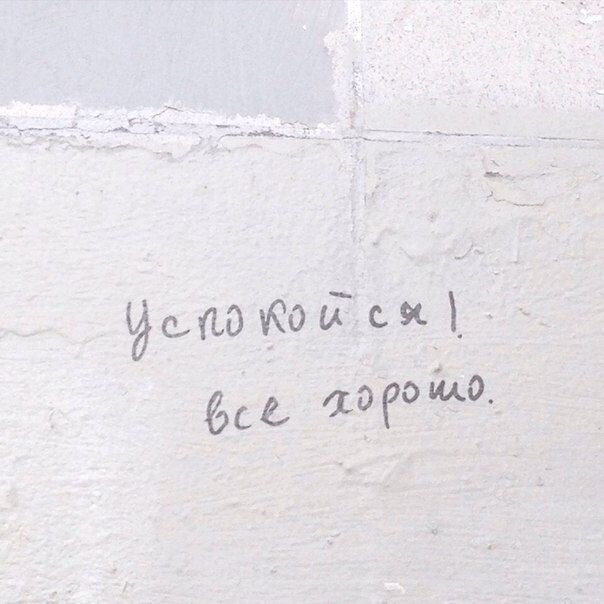 Успокойся!
все хорошо.